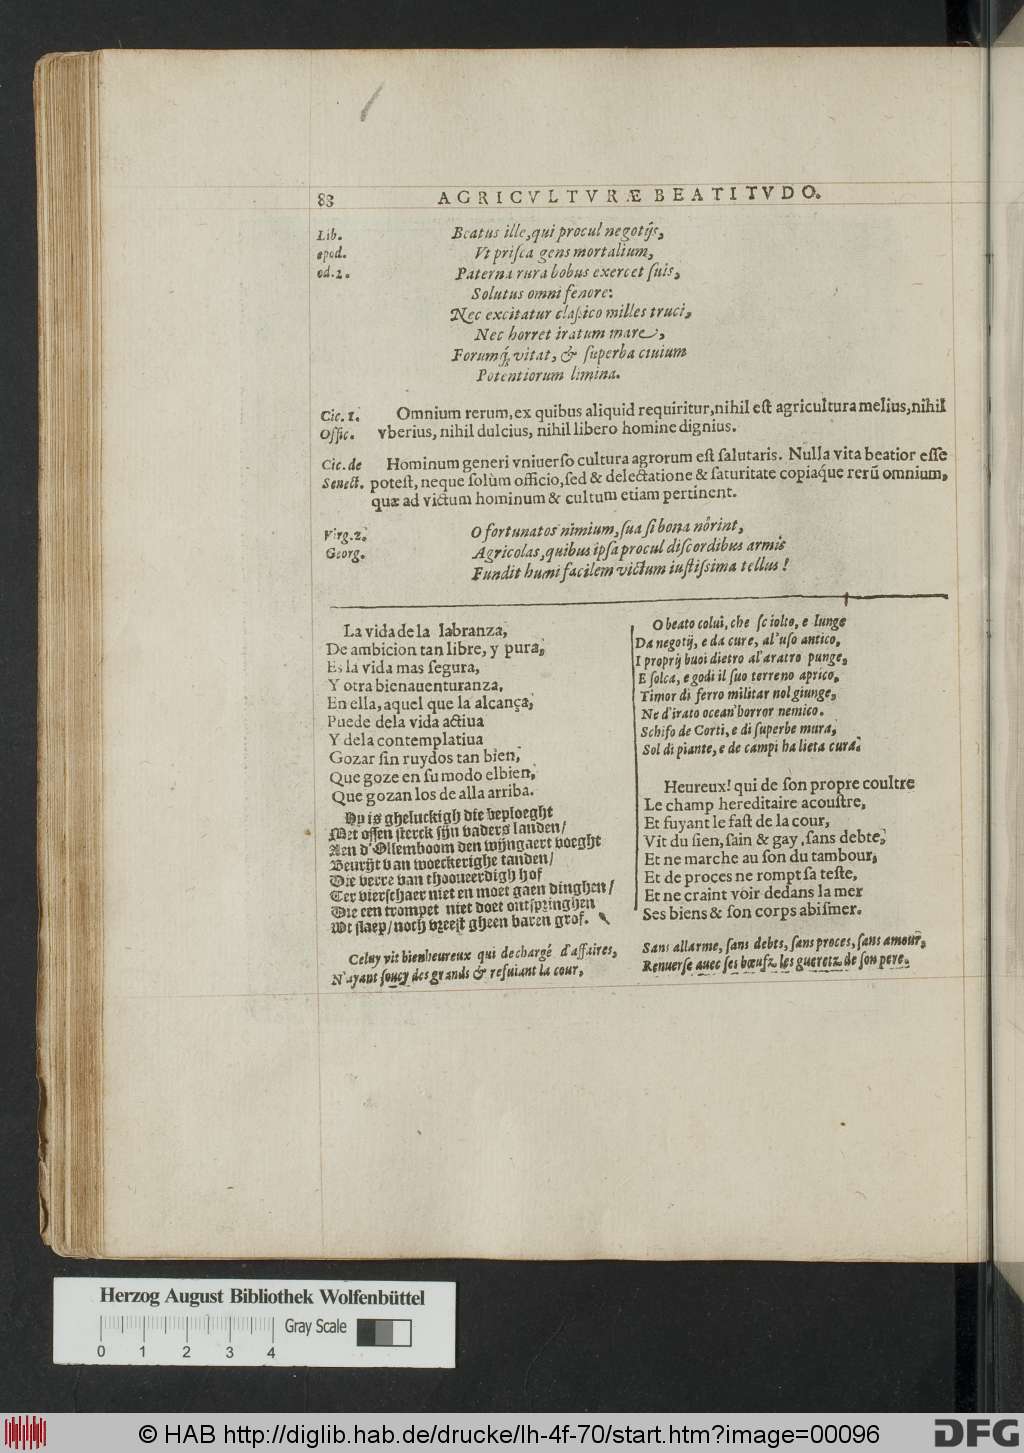 83 AGRICVLTVRÆ BEATITVDO.
Lib. Beatus ille, qui procul negotijs,
epod. Vt priſca gens mortalium,
od. 2. Paterna rura bobus exercet ſuis,
Solutus omni fenore:
Nec excitatur claßico milles truci,
Nec horret iratum mare,
Forumq́; vitat, & ſuperba ciuium
Potentiorum limina.
Cic. 1. Omnium rerum, ex quibus aliquid requiritur, nihil eſt agricultura melius, nihil
Offic. vberius, nihil dulcius, nihil libero homine dignius.
Cic. de Hominum generi vniuerſo cultura agrorum eſt ſalutaris. Nulla vita beatior eſſe
Senect. poteſt, neque ſolùm officio, ſed & delectatione & ſaturitate copiaq́ue rerū omnium,
quæ ad victum hominum & cultum etiam pertinent.
Virg. 2. O fortunatos nimium, ſua ſi bona nôrint,
Georg. Agricolas, quibus ipſa procul diſcordibus armis
Fundit humi facilem victum iuſtiſsima tellus!
La vida de la labranza,
De ambicion tan libre, y pura,
Es la vida mas ſegura,
Y otra bienauenturanza,
En ella, aquel que la alcança,
Puede dela vida actiua
Y dela contemplatiua
Gozar ſin ruydos tan bien,
Que goze en ſu modo elbien,
Que gozan los de alla arriba.
Hy is gheluckigh die beploeght
Met oſſen ſterck ſijn vaders landen/
Aen d'Ollemboom den wijngaert voeght
Bevrijt van woeckerighe tanden/
Die verre van thooveerdigh hof
Ter vierſchaer niet en moet gaen dinghen/
Die een trompet niet doet ontſpringhen
Wt ſlaep/ noch vreeſt gheen baren grof.
Celuy vit bienheureux qui dechargé d'affaires,
N'ayant ſoucy des grands & refuiant la cour,
O beato colui, che ſciolto, e lunge
Da negotij, e da cure, al'uſo antico,
I proprij buoi dietro al'aratro punge,
E ſolca, e godi il ſuo terreno aprico,
Timor di ferro militar nol giunge,
Ne d'irato ocean' horror nemico.
Schifo de Corti, e di ſuperbe mura,
Sol di piante, e de campi ha lieta cura.
Heureux! qui de ſon propre coultre
Le champ hereditaire acouſtre,
Et fuyant le faſt de la cour,
Vit du ſien, ſain & gay, ſans debte,
Et ne marche au ſon du tambour,
Et de proces ne rompt ſa teſte,
Et ne craint voir dedans la mer
Ses biens & ſon corps abiſmer.
Sans allarme, ſans debts, ſans proces, ſans amour,
Renuerſe auec ſes bœufz les gueretz de ſon pere.
Herzog August Bibliothek Wolfenbüttel
Gray Scale
0 1 2 3 4
© HAB http://diglib.hab.de/drucke/lh-4f-70/start.htm?image=00096
DFG